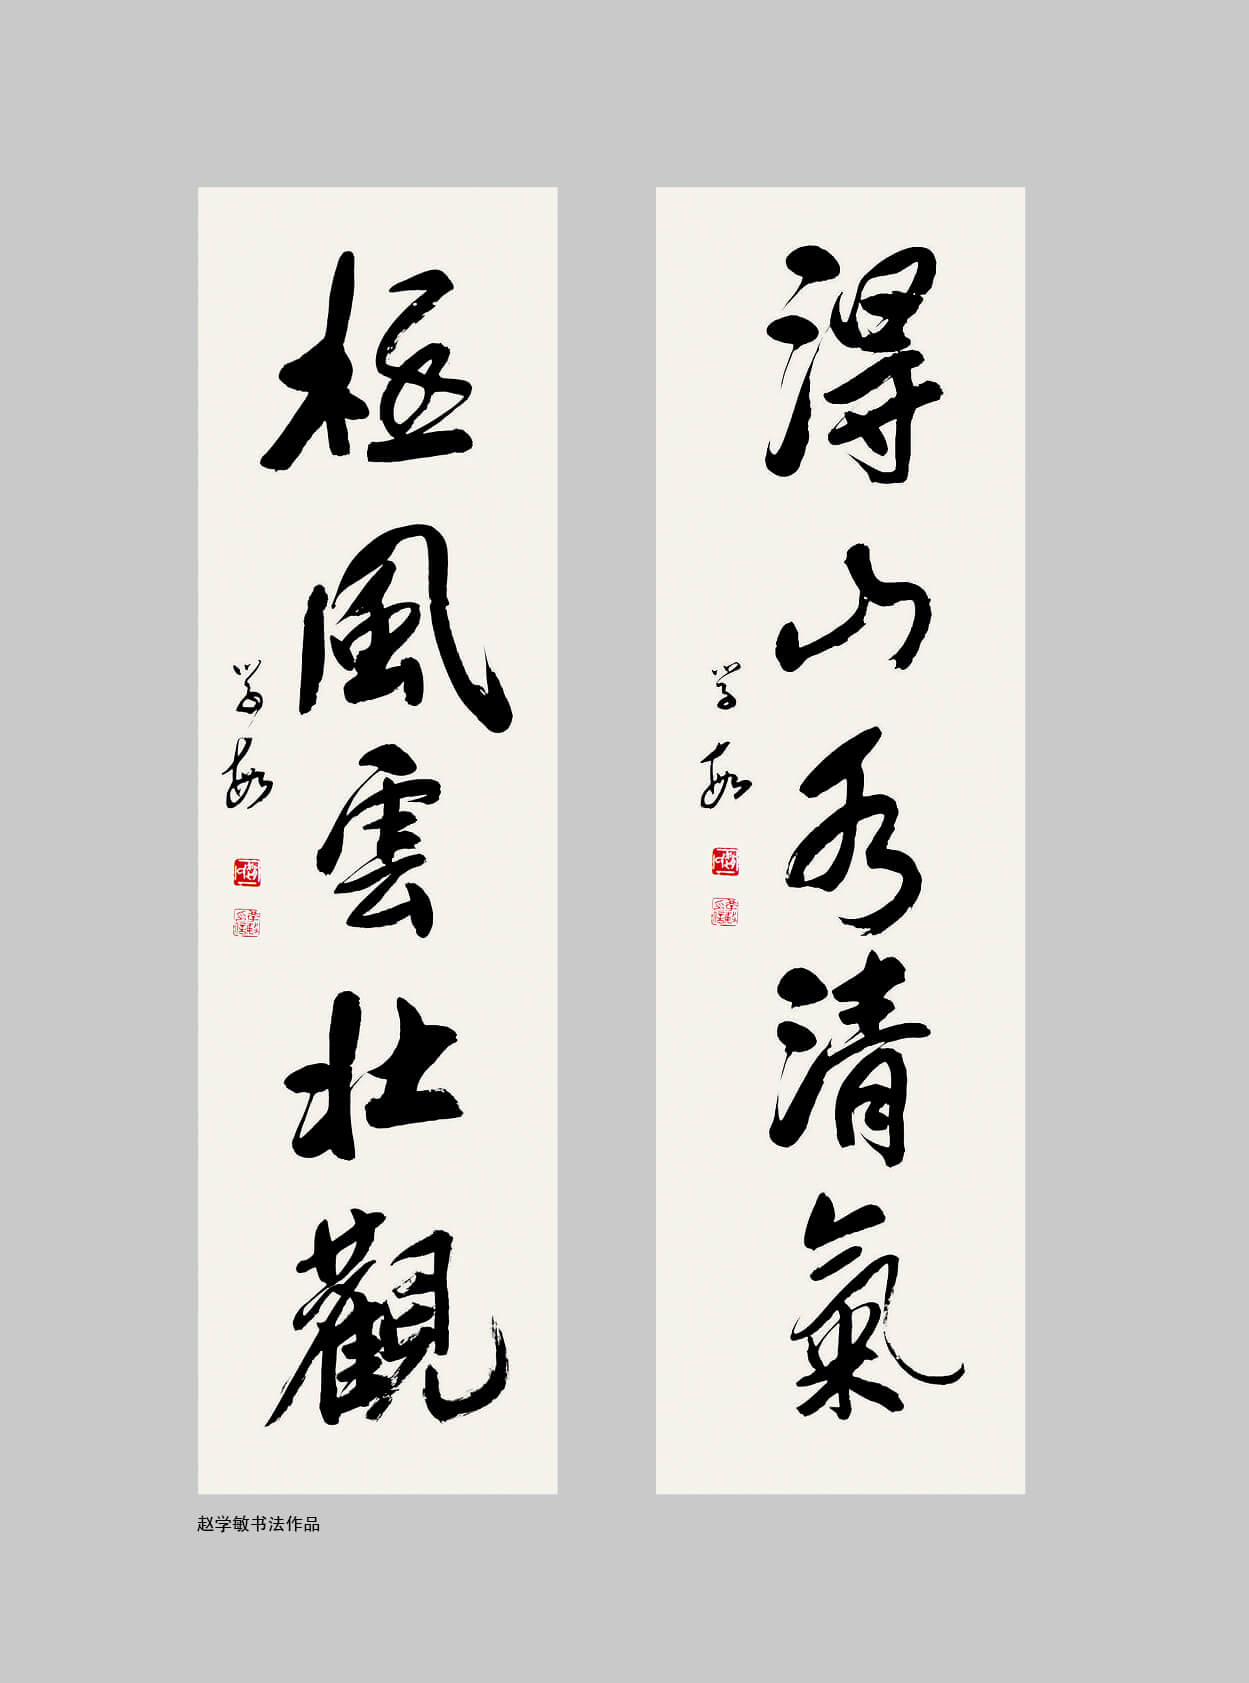 得山水清氣
学敏
極風雲壯觀
学敏
赵学敏书法作品